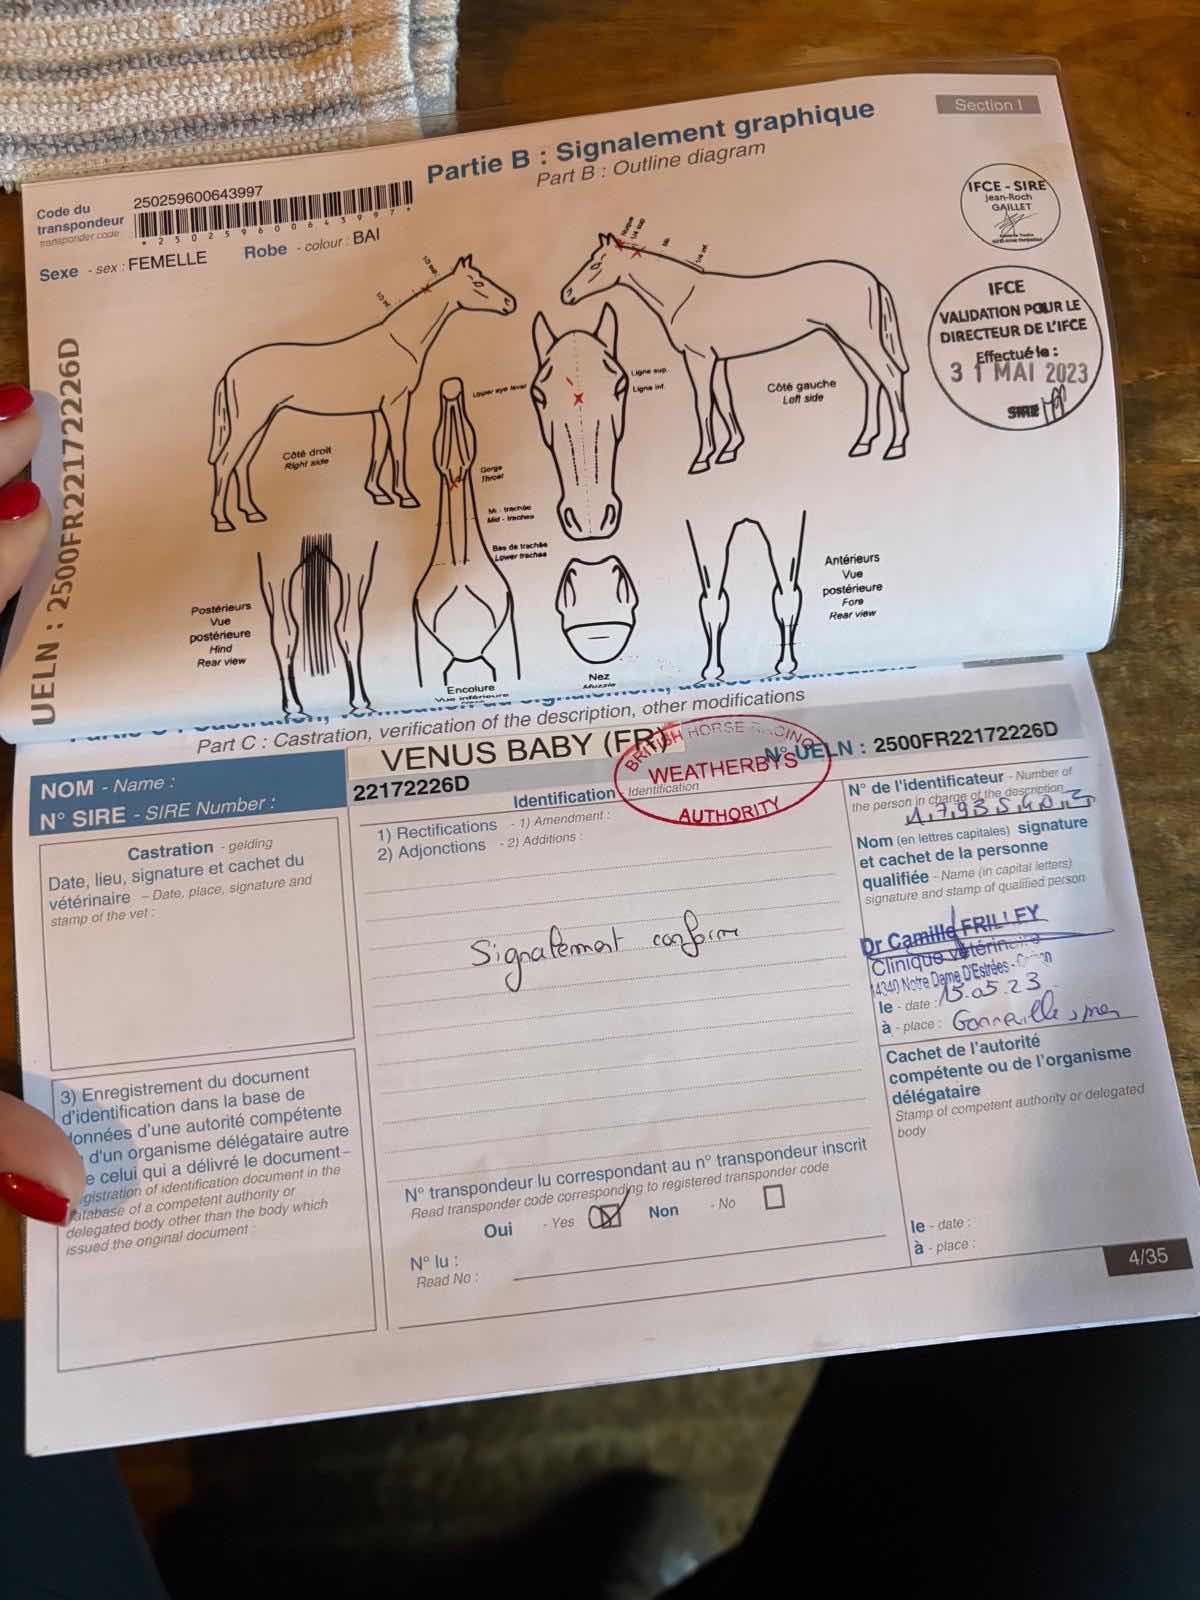 Section I
Partie B : Signalement graphique
Part B : Outline diagram
Code du
transpondeur
transponder code :
250259600643997
*250259600643997*
Sexe - sex : FEMELLE
Robe - colour : BAI
UELN : 2500FR22172226D
IFCE - SIRE
Jean-Roch
GAILLET
IFCE
VALIDATION POUR LE
DIRECTEUR DE L'IFCE
Effectué le :
31 MAI 2023
SIRE
Côté droit
Right side
Lower eye level
Ligne sup.
Ligne inf.
Côté gauche
Left side
Gorge
Throat
Mi - trachée
Mid - trachea
Bas de trachée
Lower trachea
Postérieurs
Vue
postérieure
Hind
Rear view
Encolure
Vue inférieure
Nez
Muzzle
Antérieurs
Vue
postérieure
Fore
Rear view
Part C : Castration, verification of the description, other modifications
NOM - Name :
VENUS BABY (FR)
N° SIRE - SIRE Number :
22172226D
N° UELN : 2500FR22172226D
BRITISH HORSE RACING
WEATHERBYS
AUTHORITY
Castration - gelding
Date, lieu, signature et cachet du
vétérinaire - Date, place, signature and
stamp of the vet :
Identification - Identification
1) Rectifications - 1) Amendment :
2) Adjonctions - 2) Additions :
Signalement conforme
N° de l'identificateur - Number of
the person in charge of the description
Nom (en lettres capitales) signature
et cachet de la personne
qualifiée - Name (in capital letters)
signature and stamp of qualified person
Dr Camille FRILLEY
Clinique vétérinaire
14340 Notre Dame D'Estrées -
le - date : 15.05.23
à - place : Gonneville s/mer
3) Enregistrement du document
d'identification dans la base de
données d'une autorité compétente
d'un organisme délégataire autre
e celui qui a délivré le document-
gistration of identification document in the
atabase of a competent authority or
delegated body other than the body which
issued the original document :
N° transpondeur lu correspondant au n° transpondeur inscrit
Read transponder code corresponding to registered transponder code
Oui - Yes
Non - No
N° lu :
Read No :
Cachet de l'autorité
compétente ou de l'organisme
délégataire
Stamp of competent authority or delegated
body
le - date :
à - place :
4/35